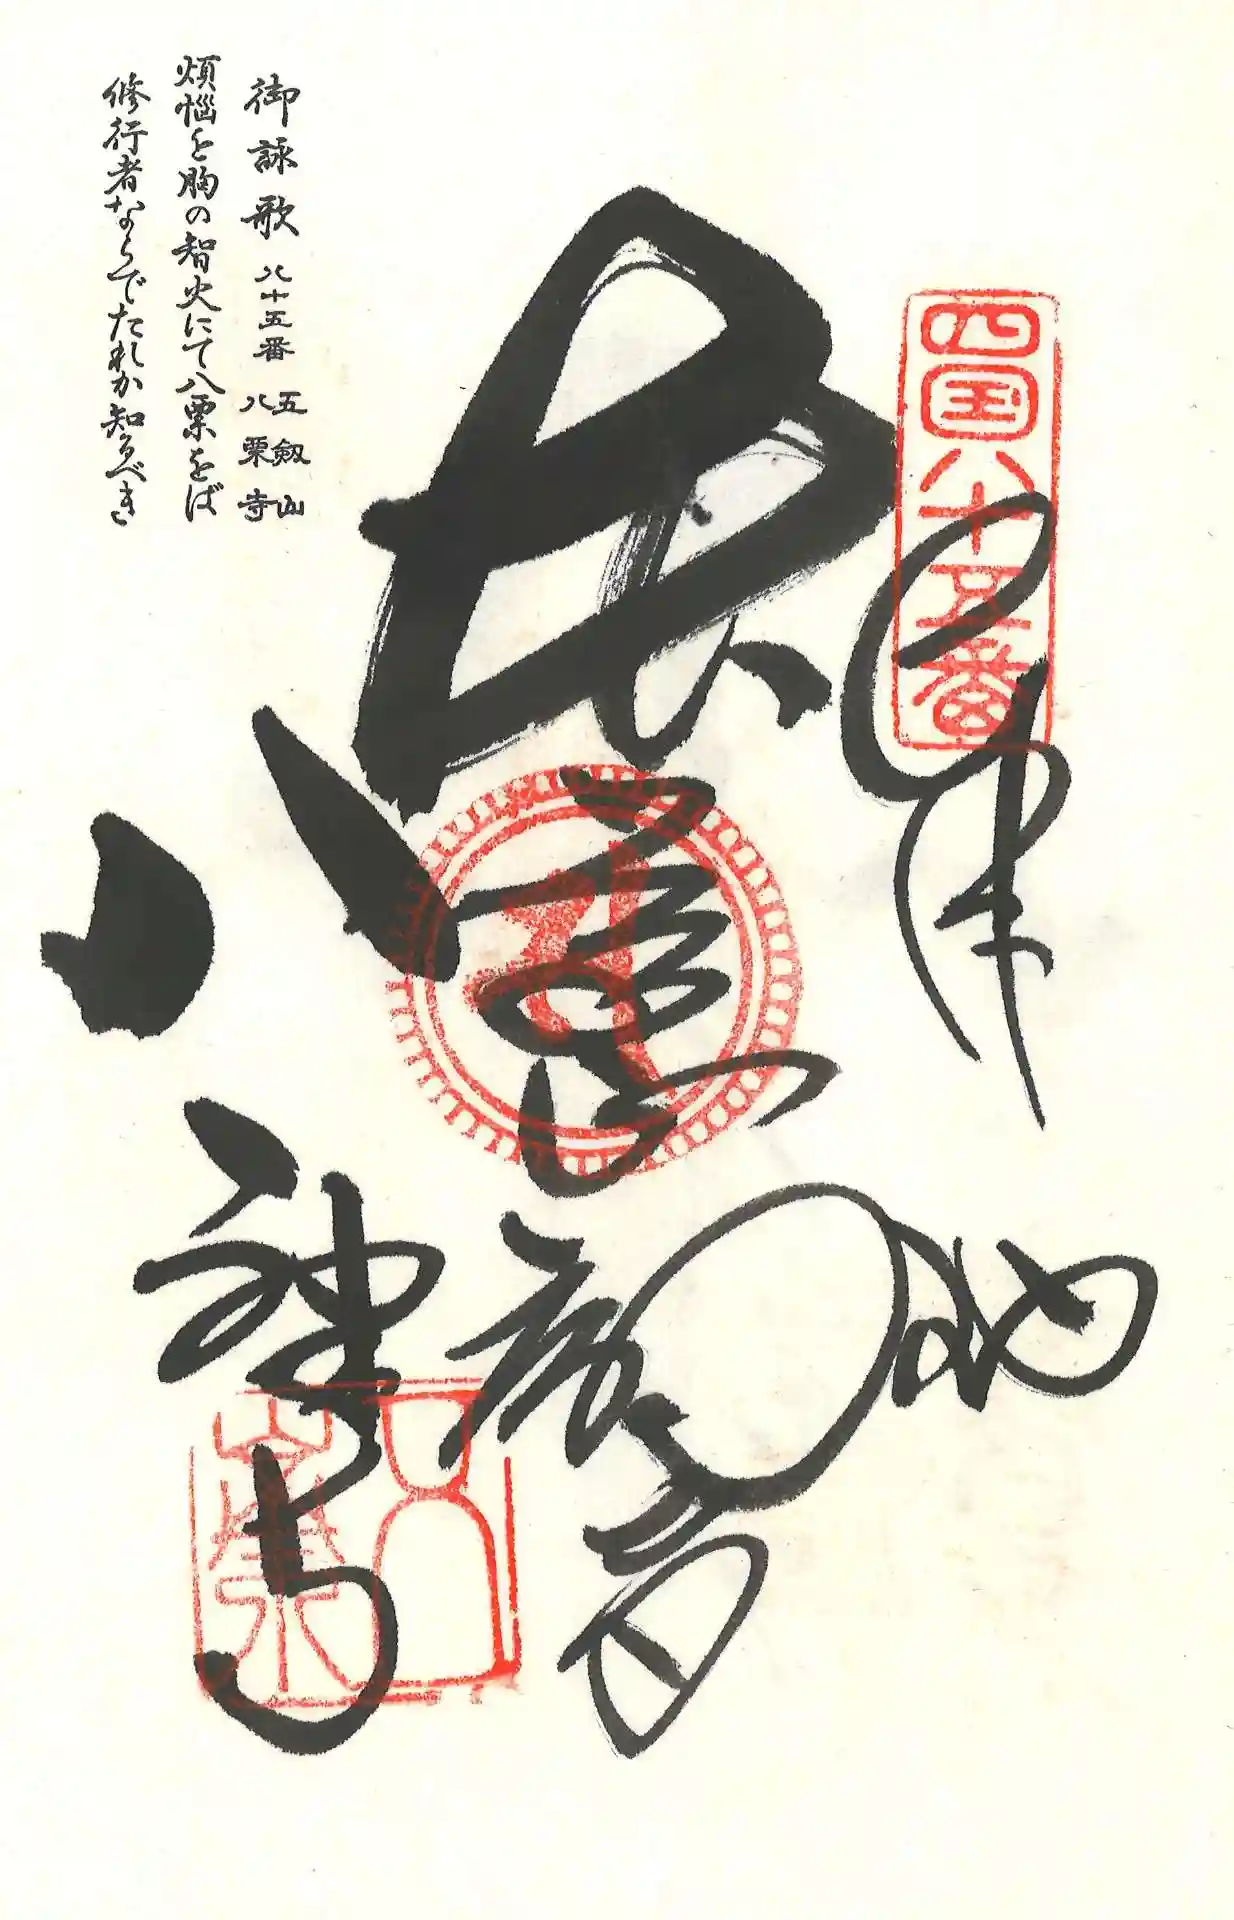 四国八十五番
奉
納
聖観音
八栗寺
八栗
御詠歌 八十五番 五剱山 八栗寺
煩悩を胸の智火にて八栗をば
修行者ならでたれか知るべき